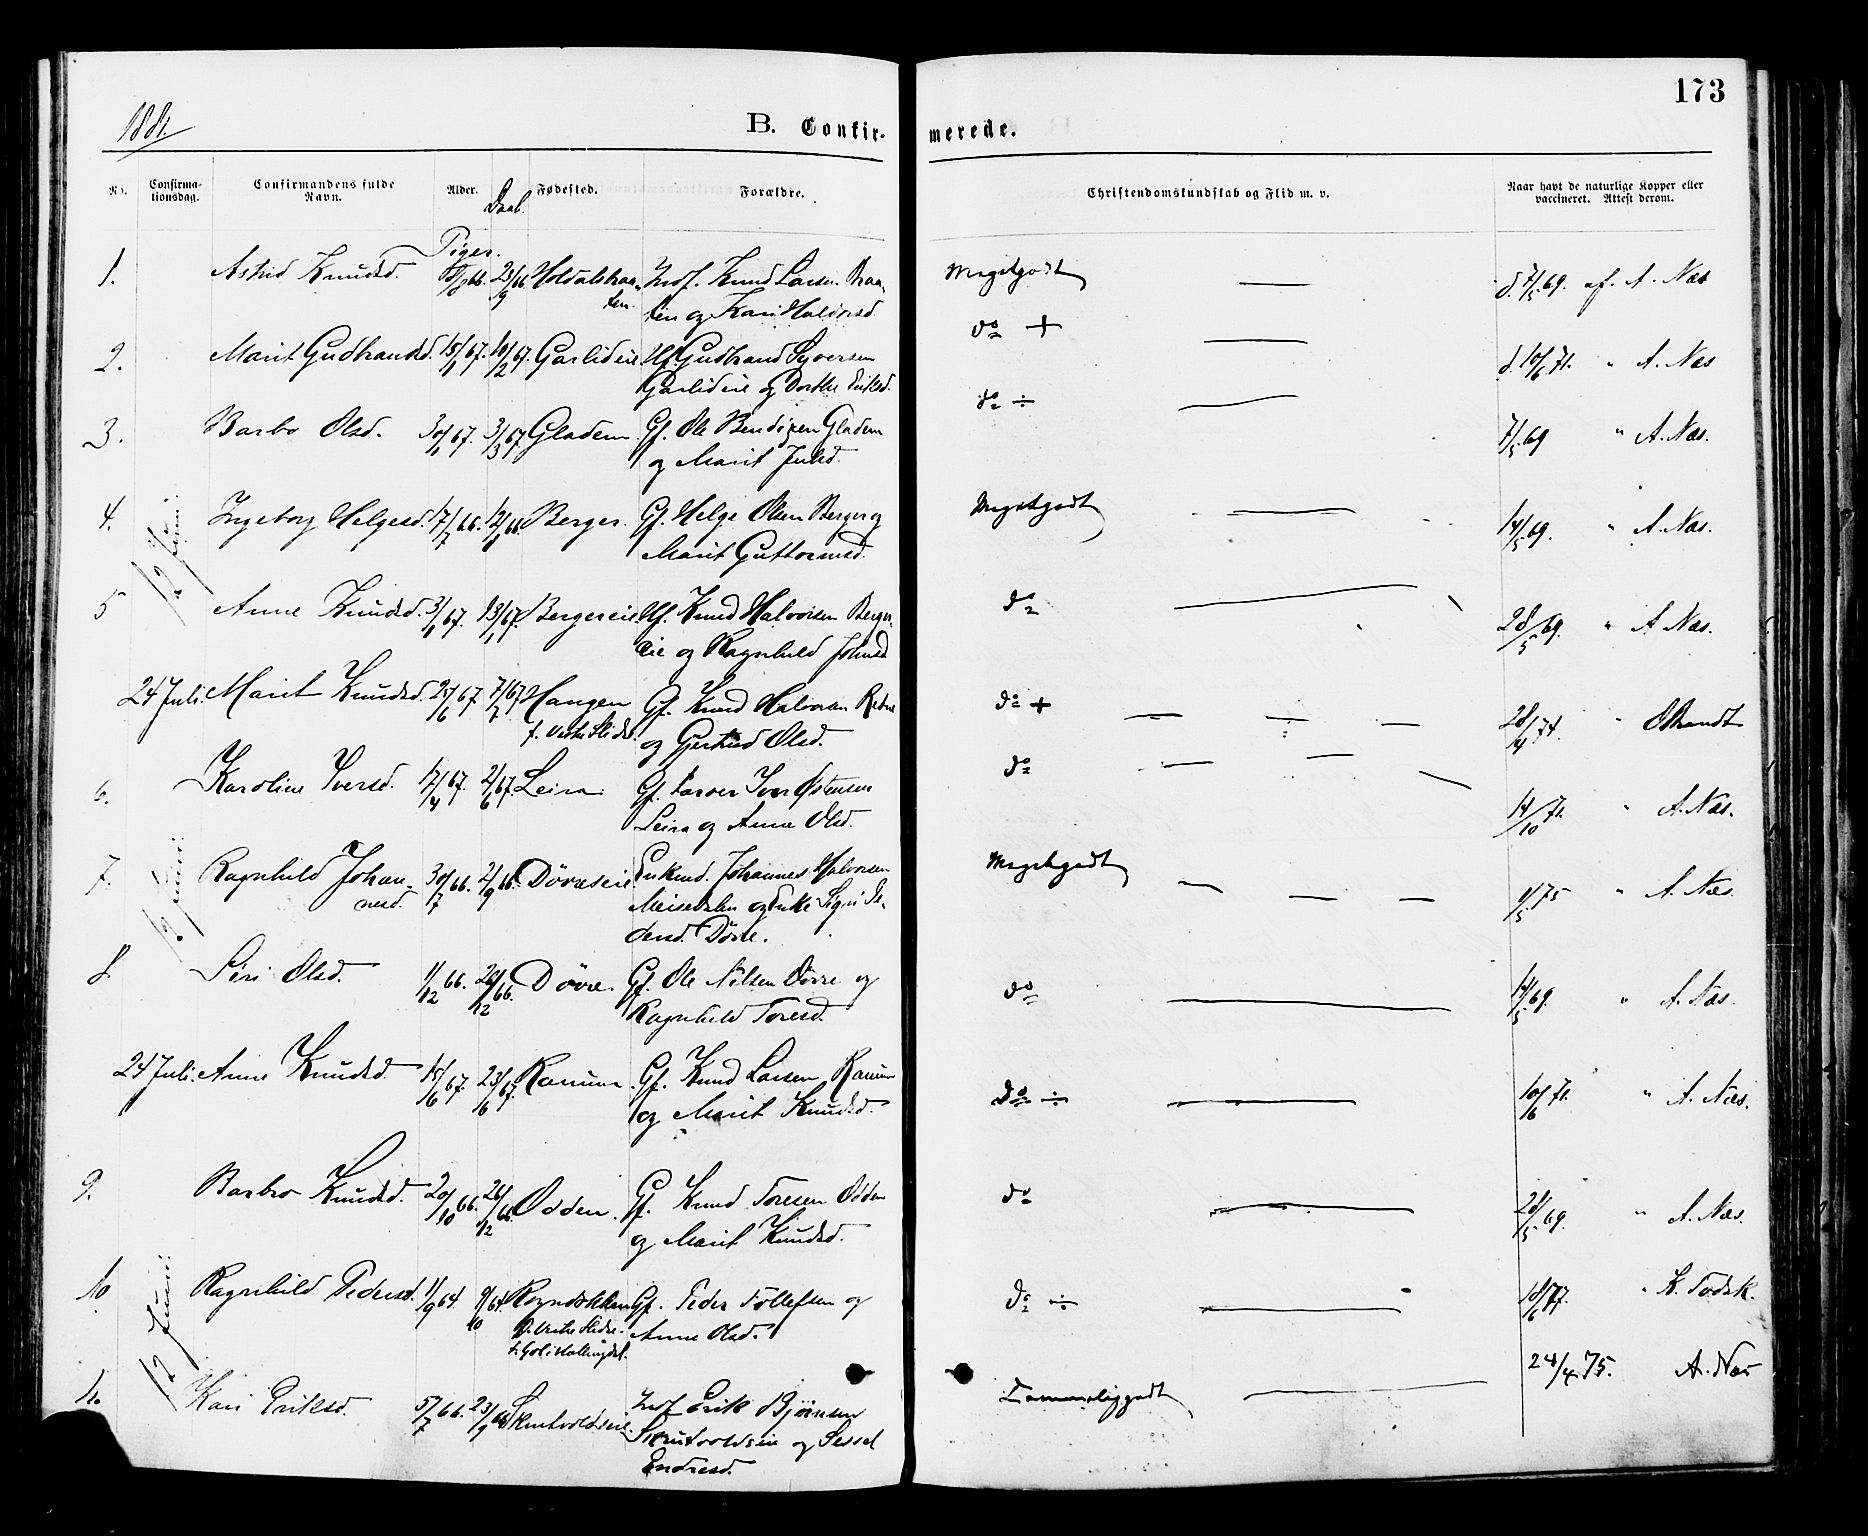 173
1881.
B. Confir-
merede.
No. Confirma-tionsdag. Confirmandens fulde Navn. Alder. Daab. Fødested. Forældre.
Christendomskundskab og Flid m. v.
Naar havt de naturlige Kopper eller vaccineret. Attest derom.
Piger.
1. Astrid Knudsd. 23/9 66. Indf. Knud Larsen Braa-
ten og Kari Haldorsd.
Megetgodt — d. 7/5 69. af. A. Næs
2. Marit Gudbrandsd. 15/1 67. 10/2 67. Garlideie Hf. Gudbrand Syversen
Garlideie og Dorthe Eriksd.
do + — d. 10/6 71. " A. Næs
3. Barbo Olsd. 30/1 67. 3/3 67. Gladem Gf. Ole Bendixen Gladem
og Marit Julsd.
do ÷ — 7/5 69 " A. Næs.
12 Juni
4. Ingeborg Helgesd. 17/7 66. 12/8 66. Berger. Gf. Helge Olsen Berger og
Marit Guttormsd.
Megetgodt — 14/5 69. " A. Næs.
5 Anne Knudsd. 3/1 67. 13/1 67. Bergereie Hf. Knud Halvorsen Berger-
eie og Ragnhild Johnsd
do — 28/5 69. " A Næs.
24 Juli. Marit Knudsd. 25/6 67. 7/7 67. Haugen Gf. Knud Halvorsen
f. Vestre Slidre. og Gjertrud Olsd.
do + — — — 28/4 74. " O Brandt
6. Karoline Iversd. 17/4 67. 2/6 67. Leira Gf. Farver Iver Østensen
Leira og Anne Olsd.
do — — — 14/10 71. " A. Næs.
12 Juni
7. Ragnhild Johan-
nesd. 30/7 66. 2/9 66. Dövreeie Enkemd. Johannes Halvorsen
Meisedalen og Enke Sigri Pe-
dersd. Dövre.
Megetgodt — — — 4/5 75 " A. Næs.
8. Siri Olsd. 1/12 66. 26/12 66. Dövre. Gf. Ole Nilsen Dövre og
Ragnhild Toresd.
do — 14/5 69. " A. Næs.
24 Juli. Anne Knudsd. 15/6 67. 23/6 67. Ranum Gf. Knud Larsen Ranum
og Marit Knudsd.
do ÷ — 10/6 71. " A. Næs.
9. Barbro Knudsd. 20/10 66. 26/12 66. Odden. Gf. Knud Toresen Odden
og Marit Knudsd.
do — 28/5 69. " A. Næs.
12 Juni
10. Ragnhild Pedersd. 1/9 64. 9/10 64. Gf. Peder Tollefsen og
V. Vestre Slidre. Anne Olsd.
f. Gol i Hallingdal.
do ÷ — 18/6 77. " K. Todsk.
11. Kari Eriksd. 5/7 66. 23/9 66. Skrutvoldseie. Indf Erik Bjørnsen
Skrutvoldseie og Sessel
Endresd.
Temmeliggodt — 24/4 75. A. Næs